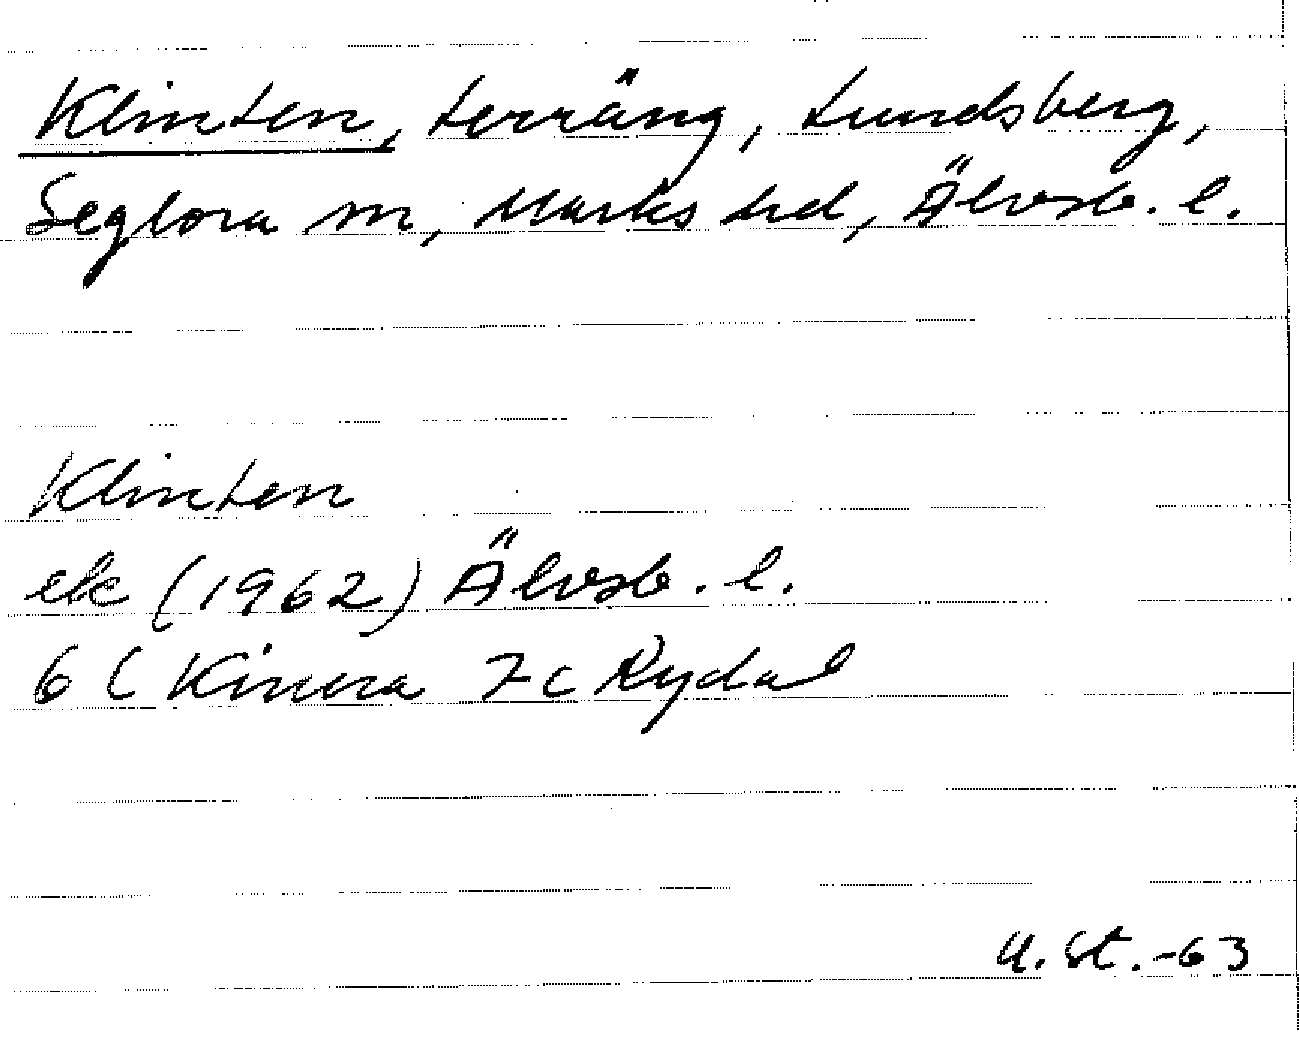 Klinten, terräng, Lundsberg,
Seglora sn, Marks hd, Älvsb. l.
Klinten
ek (1962) Älvsb. l.
6 C Kinna 7 C Rydal
U. St. -63